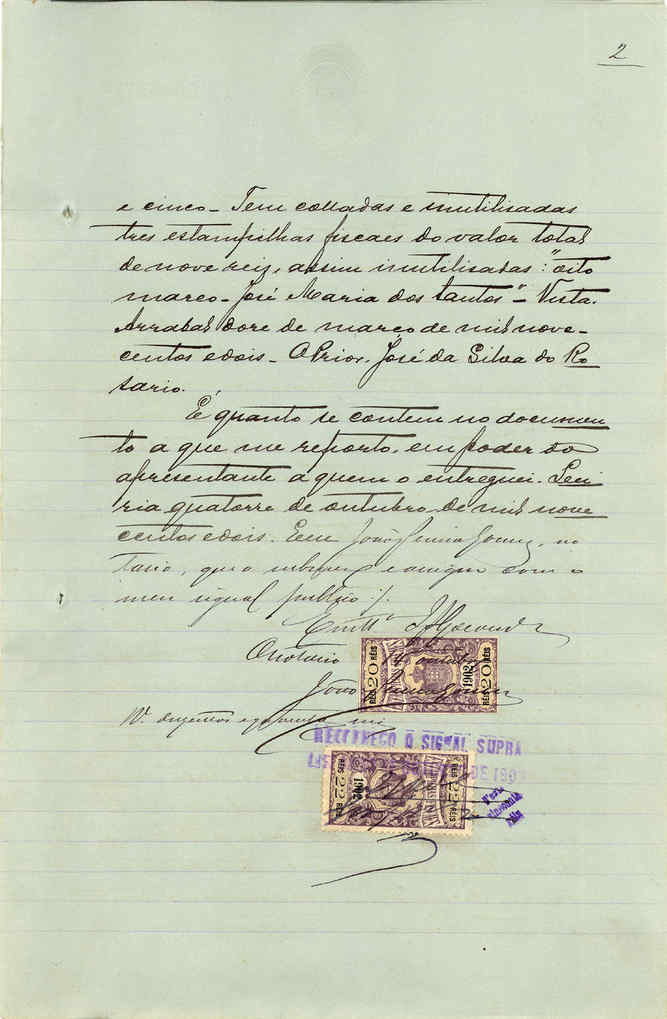 2
e cinco - Tem colladas e inutilisadas
tres estampilhas fiscaes do valor total
de nove reis, assim inutilisadas: "oito
março - José Maria dos Santos" - Visto.
Arrabal doze de março de mil nove-
centos e dois - O Prior, José da Silva do Ro
sario.
É quanto se contem no documen
to a que me reporto, em poder do
apresentante a quem o entreguei. Lei
ria quatorze de outubro de mil nove
centos e dois. E eu João
tario, que o e assigno com o
meu signal publico
O notario 14
João
RÉIS 20 RÉIS
1902
Nº duzentos e quarenta mil
RECONHEÇO O SIGNAL SUPRA
DE 190
RÉIS
1902